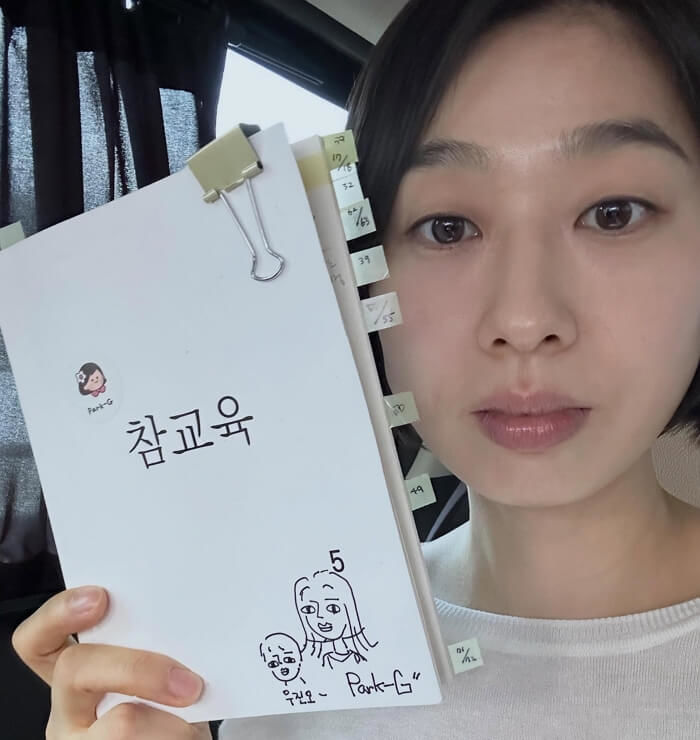 Park-G
참교육
5
우진오~
Park-G"
17/18
32
62/63
39
/55
49